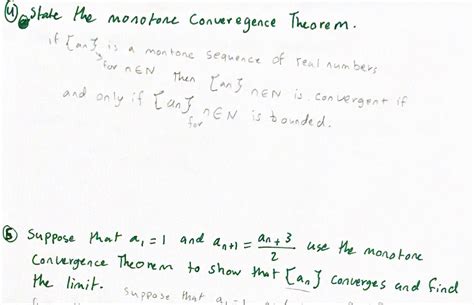 ④ State the monotone Converegence Theorem.
if {an} is a montone sequence of real numbers
for n∈N Then {an} n∈N is convergent if
and only if {an} n∈N is bounded.
for
⑤ Suppose that a₁ = 1 and aₙ₊₁ = (aₙ + 3)/2 use the monotone
Convergence Theorem to show that {an} converges and find
the limit.
Suppose that a₁ = 1